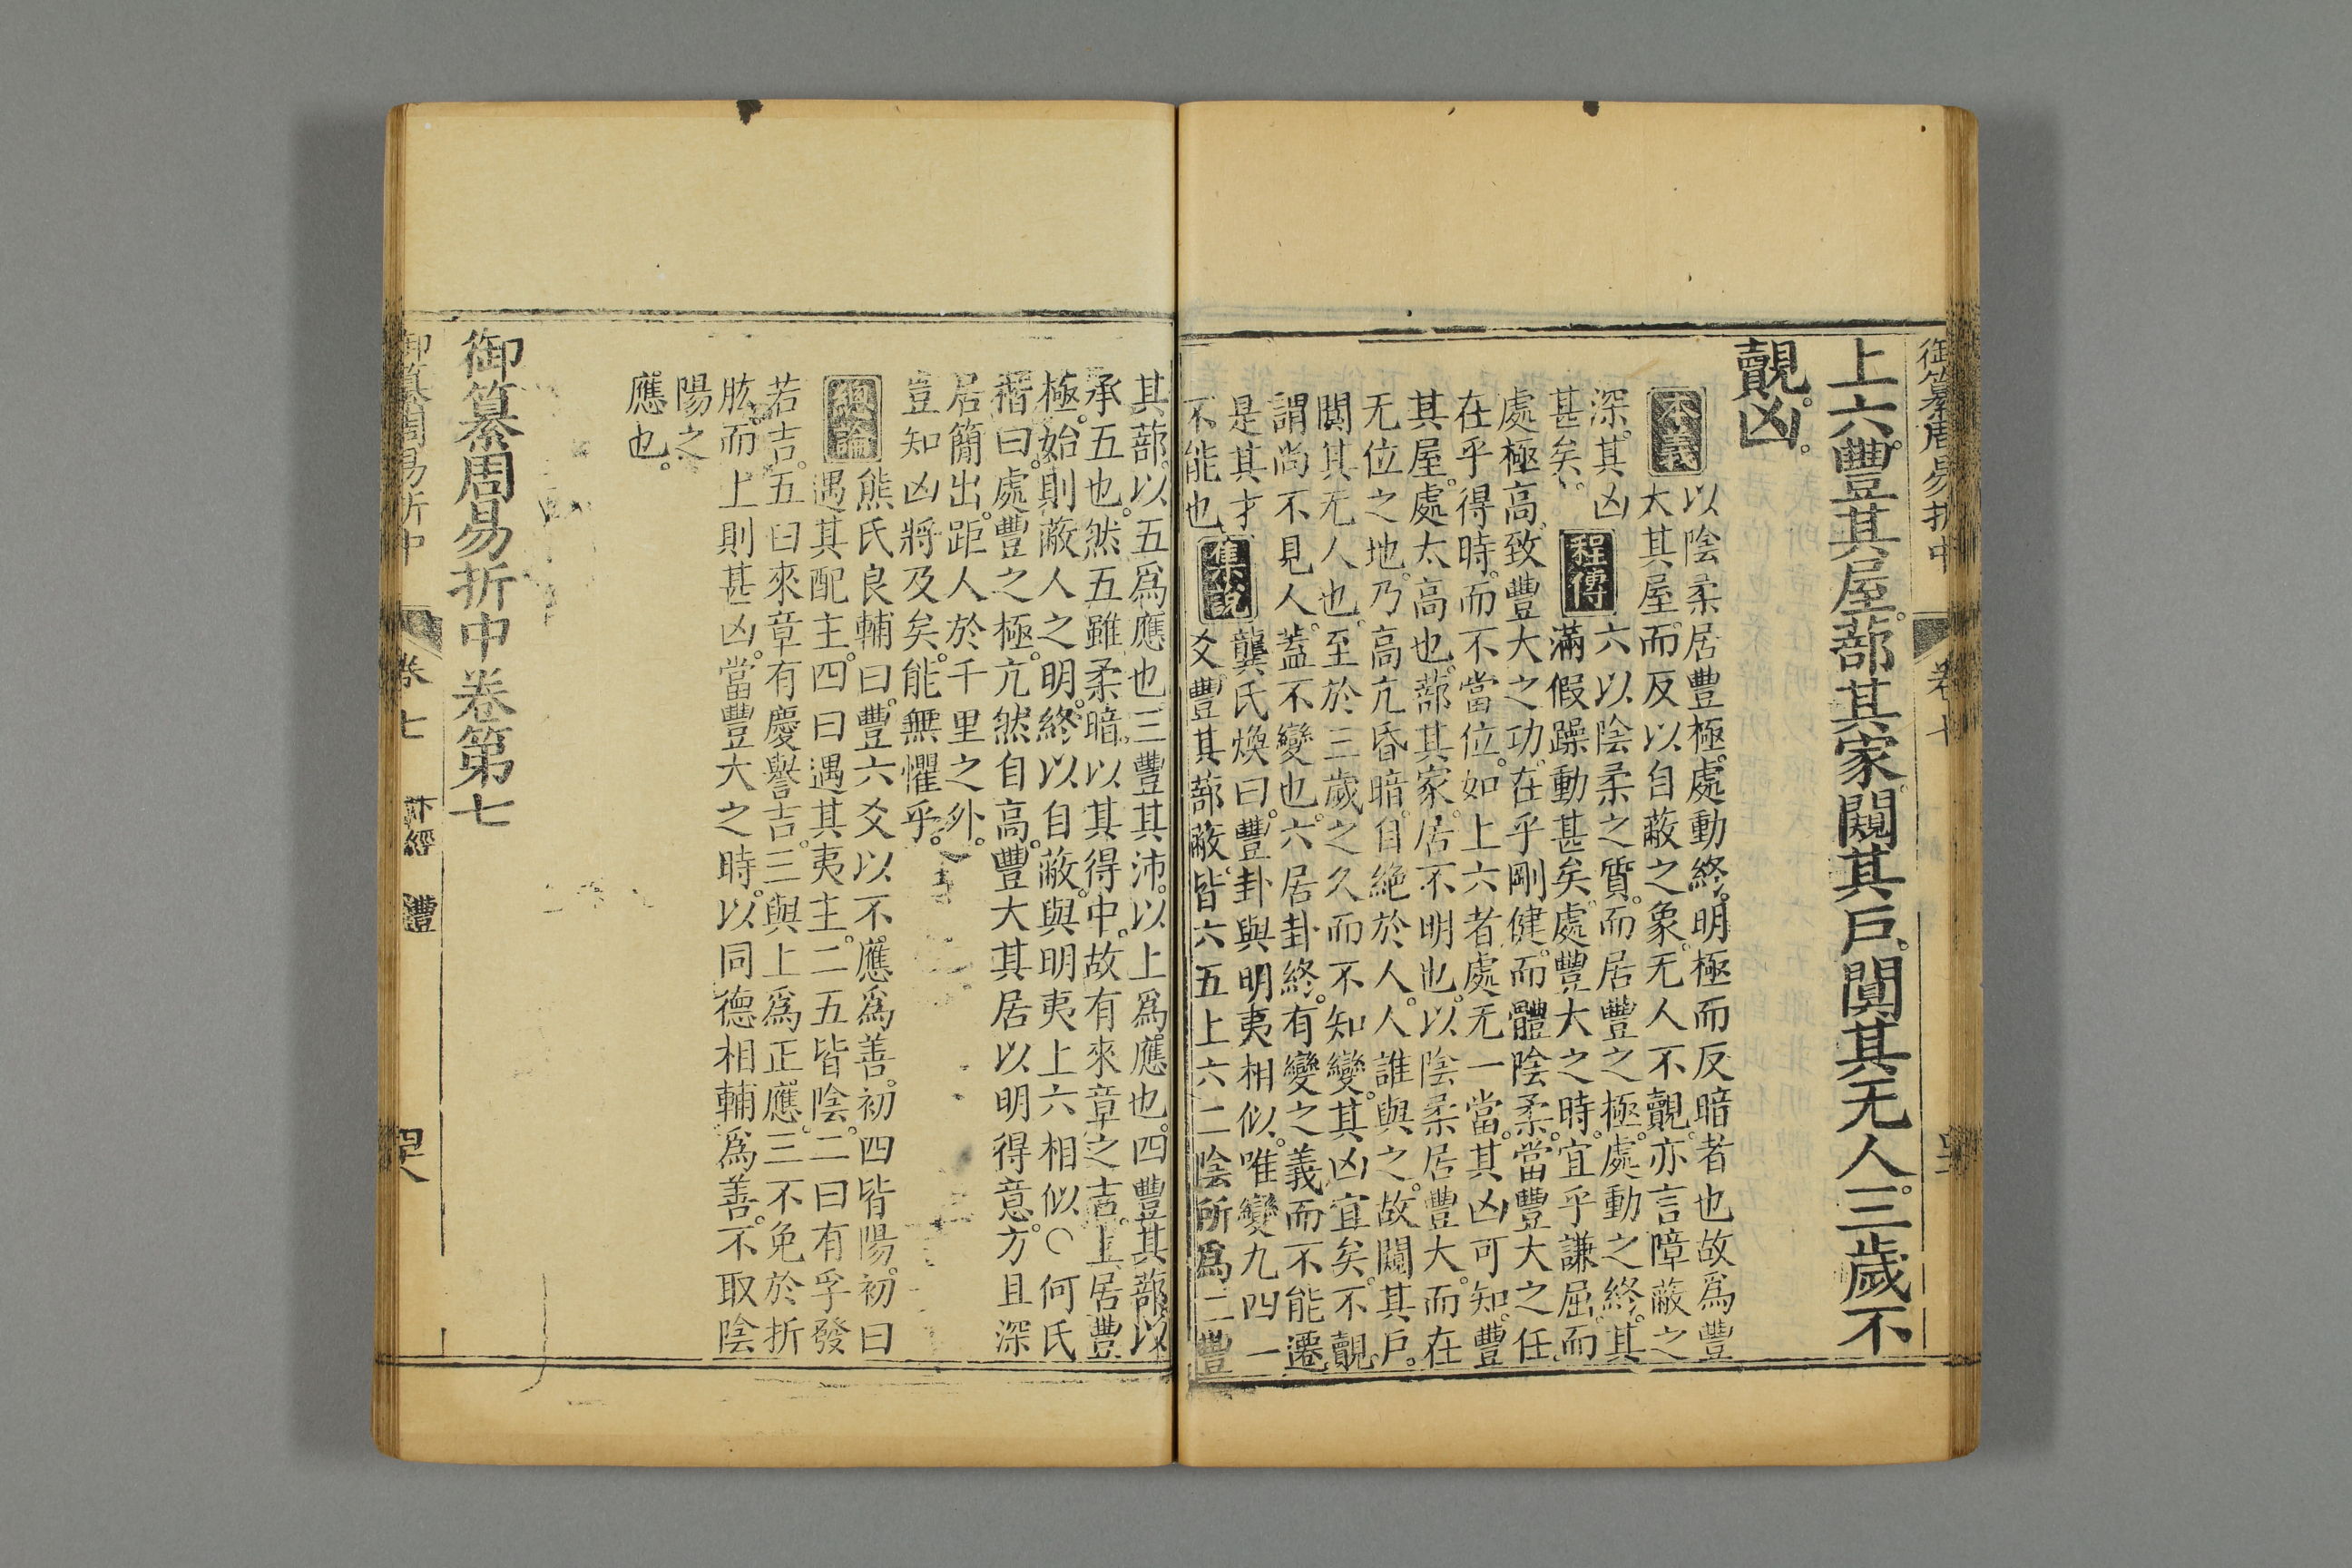 御纂周易折中
卷七
上六豐其屋蔀其家闚其戶闃其无人三歲不
覿凶
本義
以陰柔居豐極處動終明極而反暗者也故爲豐
大其屋而反以自蔽之象无人不覿亦言障蔽之
深其凶
甚矣
程傳
六以陰柔之質而居豐之極處動之終其
滿假躁動甚矣處豐大之時宜乎謙屈而
處極高致豐大之功在乎剛健而體陰柔當豐大之任
在乎得時而不當位如上六者處无一當其凶可知豐
其屋處太高也蔀其家居不明也以陰柔居豐大而在
无位之地乃高亢昏暗自絶於人人誰與之故闚其戶
闃其无人也至於三歲之久而不知變其凶宜矣不覿
謂尚不見人蓋不變也六居卦終有變之義而不能遷
是其才
不能也
集說
龔氏煥曰豐卦與明夷相似唯變九四一
爻豐其蔀蔽皆六五上六二陰所爲二豐
其蔀以五爲應也三豐其沛以上爲應也四豐其蔀以
承五也然五雖柔暗以其得中故有來章之吉上居豐
極始則蔽人之明終以自蔽與明夷上六相似○何氏
楷曰處豐之極亢然自高豐大其居以明得意方且深
居簡出距人於千里之外
豈知凶將及矣能無懼乎
總論
熊氏良輔曰豐六爻以不應爲善初四皆陽初曰
遇其配主四曰遇其夷主二五皆陰二曰有孚發
若吉五曰來章有慶譽吉三與上爲正應三不免於折
肱而上則甚凶當豐大之時以同德相輔爲善不取陰
陽之
應也
御纂周易折中卷第七
御纂周易折中
卷七
下經
豐